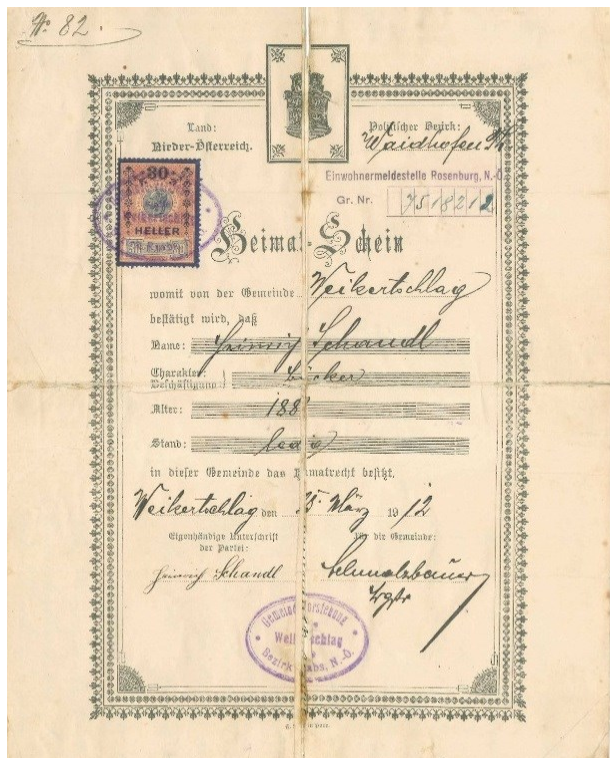 No. 82.
Land:
Nieder-Österreich.
Politischer Bezirk:
Waidhofen
Einwohnermeldestelle Rosenburg, N.-Ö.
Gr. Nr.
30
HELLER
Heimat-Schein
womit von der Gemeinde Weikertschlag
bestätigt wird, daß
Name: Heinrich Schandl
Charakter:
Beschäftigung: Bäcker
Alter: 188
Stand: ledig
in dieser Gemeinde das Heimatrecht besitzt.
Weikertschlag den 25. März 1912
Eigenhändige Unterschrift
der Partei:
Für die Gemeinde:
Heinrich Schandl
Schmalzbauer
Gemeinde-Vorstehung
Weikertschlag
Bezirk Raabs, N.-Ö.